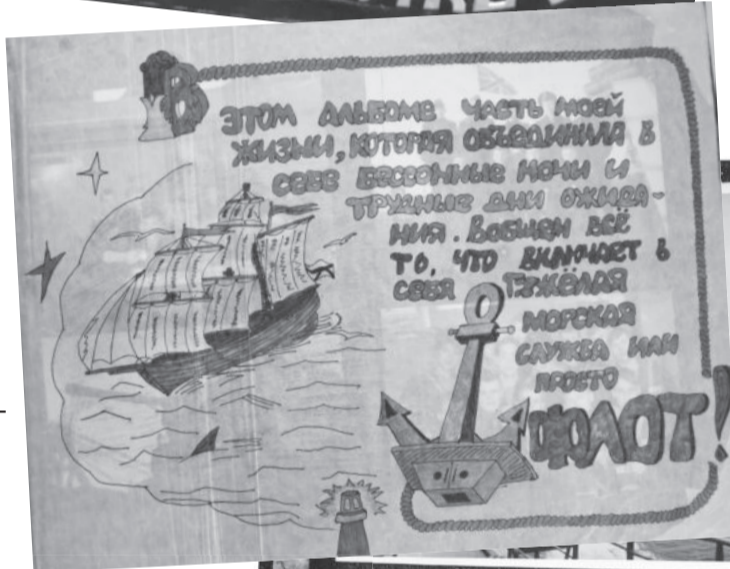 В ЭТОМ АЛЬБОМЕ ЧАСТЬ МОЕЙ
ЖИЗНИ, КОТОРАЯ ОБЪЕДИНИЛА В
СЕБЕ БЕССОННЫЕ НОЧИ И
ТРУДНЫЕ ДНИ ОЖИДА-
НИЯ. ВОБЩЕМ ВСЁ
ТО, ЧТО ВКЛЮЧАЕТ В
СЕБЯ ТЯЖЁЛАЯ
МОРСКАЯ
СЛУЖБА ИЛИ
ПРОСТО
ФЛОТ!